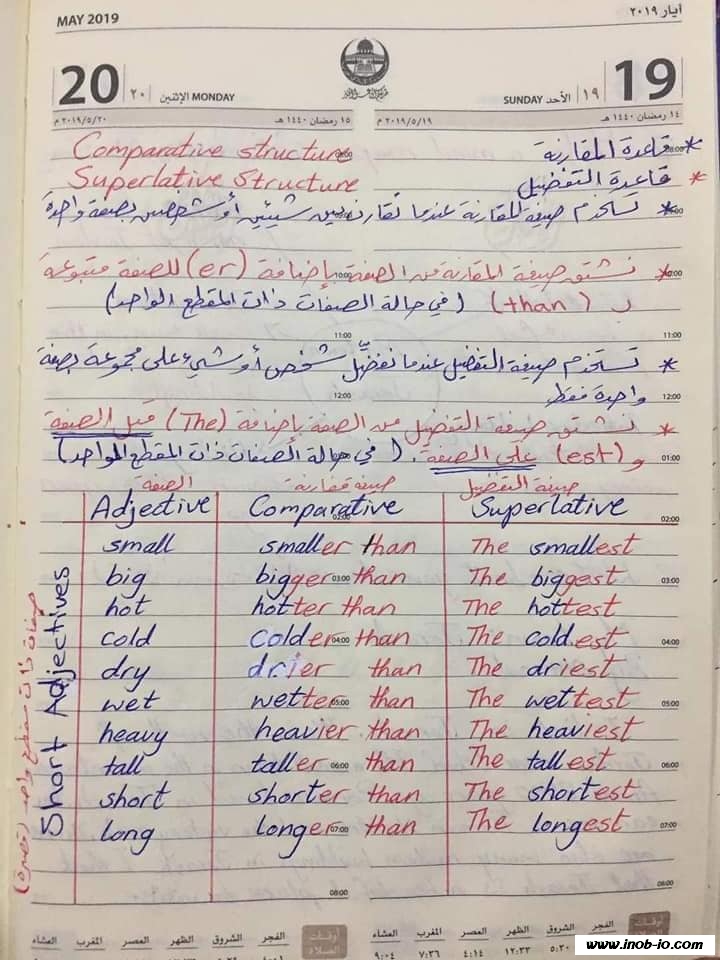 MAY 2019
أيار ٢٠١٩
20 ٢٠ الإثنين MONDAY
SUNDAY الأحد ١٩ 19
٢٠١٩/٥/٢٠ م
١٥ رمضان ١٤٤٠ هـ
٢٠١٩/٥/١٩ م
١٤ رمضان ١٤٤٠ هـ
Comparative structure
* قاعدة المقارنة
Superlative Structure
* قاعدة التفضيل
* تستخدم صيغة المقارنة عندما نقارن بين شيئين أو شخصين بصفة واحدة
* نشتق صيغة المقارنة من الصفة بإضافة (er) للصفة متبوعة
بـ (than) (في حالة الصفات ذات المقطع الواحد)
11:00
11:00
* تستخدم صيغة التفضيل عندما نفضّل شخص أو شيء على مجموعة بصفة
واحدة فقط
12:00
12:00
* نشتق صيغة التفضيل من الصفة بإضافة (The) قبل الصفة
و (est) على الصفة. (في حالة الصفات ذات المقطع الواحد)
01:00
الصفة صيغة مقارنة صيغة التفضيل
Adjective Comparative Superlative
02:00
02:00
small smaller than The smallest
big bigger than The biggest
03:00
03:00
hot hotter than The hottest
cold colder than The coldest
04:00
04:00
dry drier than The driest
wet wetter than The wettest
05:00
05:00
heavy heavier than The heaviest
tall taller than The tallest
06:00
06:00
short shorter than The shortest
long longer than The longest
07:00
07:00
08:00
08:00
Short Adjectives
صفات ذات مقطع واحد (قصيرة)
أوقات الصلاة الفجر الشروق الظهر العصر المغرب العشاء
أوقات الصلاة الفجر الشروق الظهر العصر المغرب العشاء
١٢:٣٣ ٤:١٤ ٧:٣٦ ٩:٠٤
www.inob-io.com